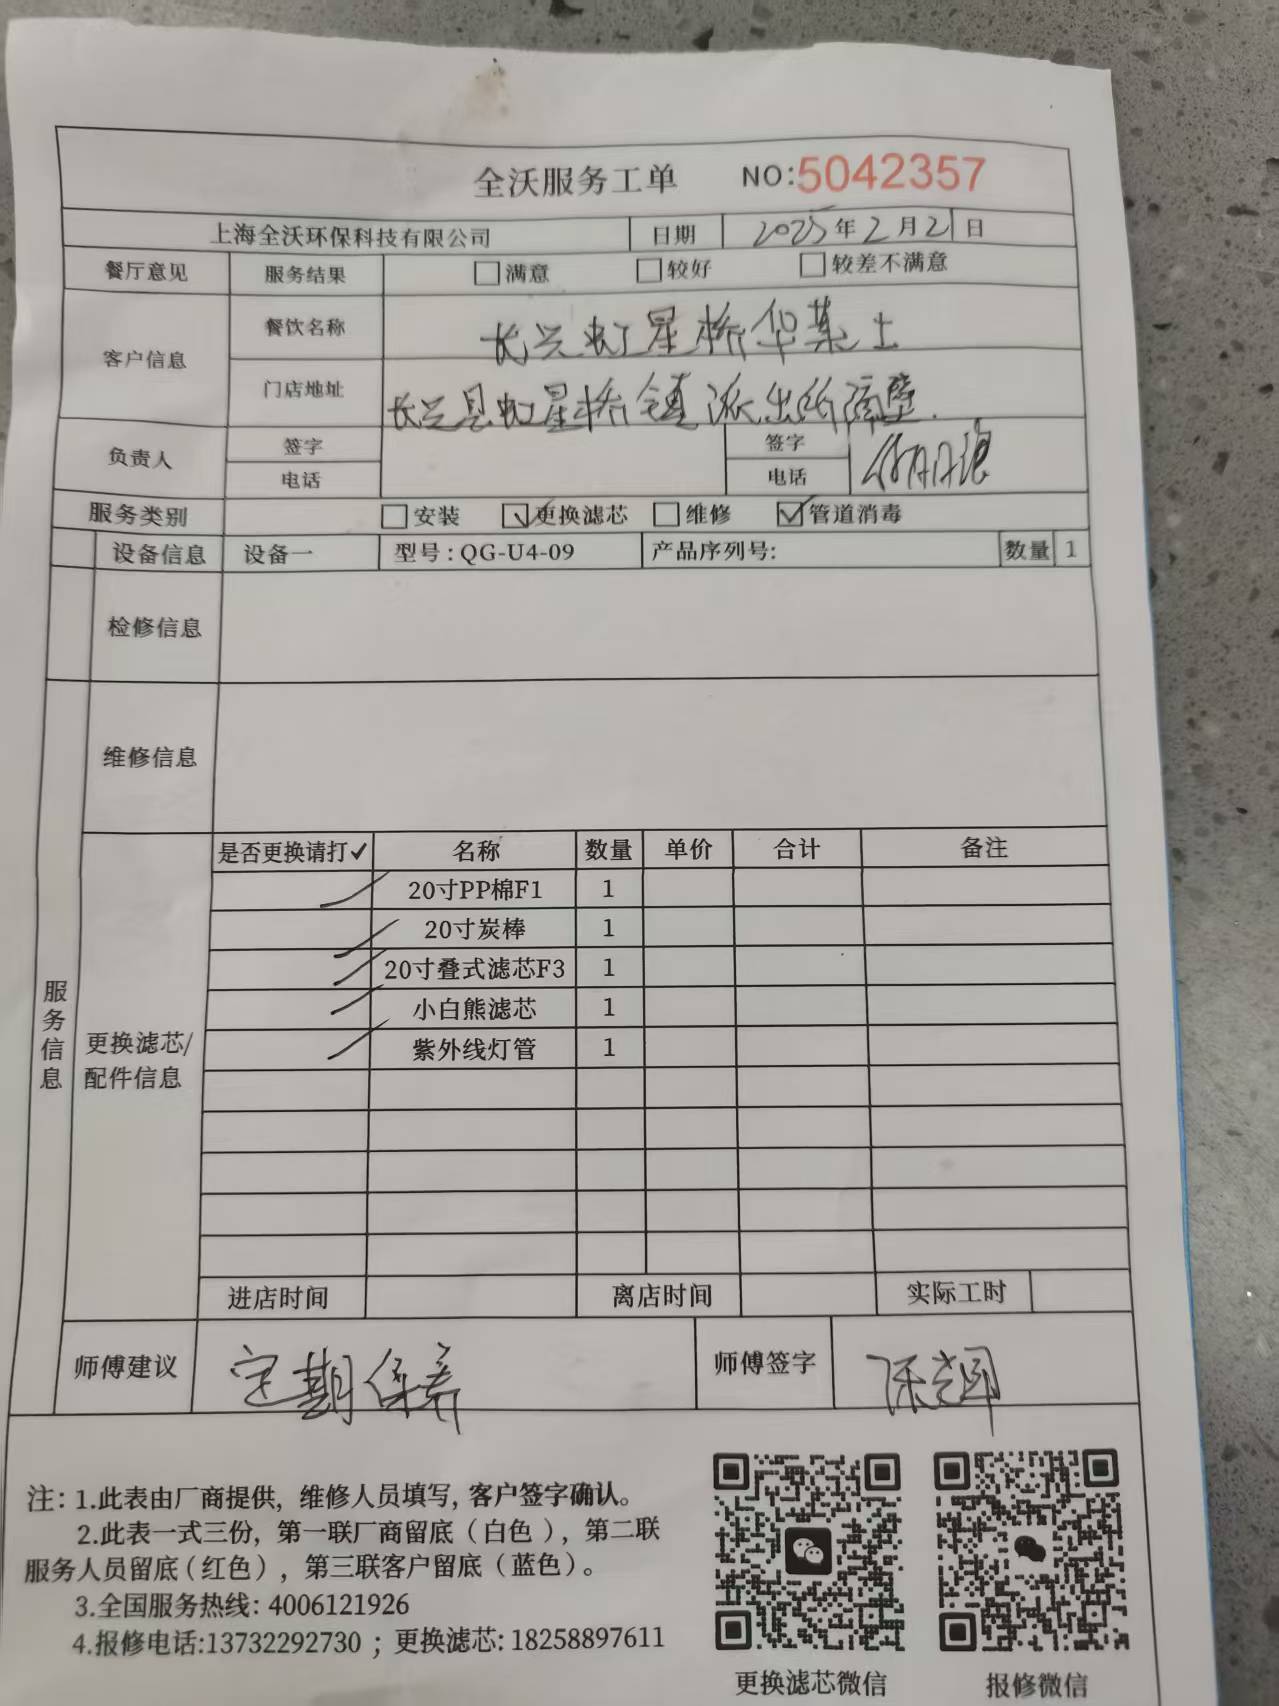 全沃服务工单 NO:5042357
上海全沃环保科技有限公司 日期 2025年2月21日
餐厅意见 服务结果 □满意 □较好 □较差不满意
客户信息 餐饮名称 长兴虹星桥华莱士
门店地址 长兴县虹星桥镇派出所隔壁.
负责人 签字 签字
电话 电话
服务类别 □安装 ☑更换滤芯 □维修 ☑管道消毒
设备信息 设备一 型号:QG-U4-09 产品序列号: 数量 1
检修信息
维修信息
服务信息
更换滤芯/
配件信息
是否更换请打✓ 名称 数量 单价 合计 备注
✓ 20寸PP棉F1 1
✓ 20寸炭棒 1
✓ 20寸叠式滤芯F3 1
✓ 小白熊滤芯 1
✓ 紫外线灯管 1
进店时间 离店时间 实际工时
师傅建议 定期保养 师傅签字
注:1.此表由厂商提供, 维修人员填写, 客户签字确认。
2.此表一式三份, 第一联厂商留底(白色), 第二联
服务人员留底(红色), 第三联客户留底(蓝色)。
3.全国服务热线: 4006121926
4.报修电话:13732292730 ; 更换滤芯: 18258897611
更换滤芯微信 报修微信